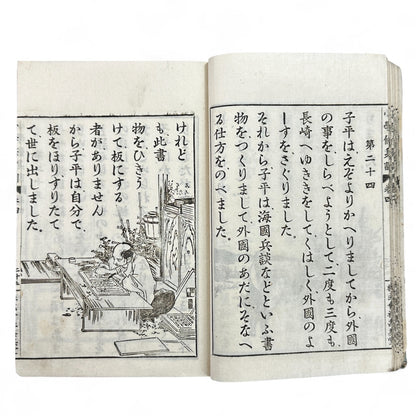 第二十四
子平は、えぞよりかへりましてから、外國
の事をしらべようとして、二度も三度も、
長崎へゆききをして、くはしく、外國のよ
ーすをさぐりました。
それから子平は、海國兵談などといふ書
物をつくりまして、外國のあだにそなへ
る仕方をのべました。
けれど
も此書
物をひきう
けて、板にする
者がありません
から、子平は自分で、
板をほりすりたて
て世に出しました。